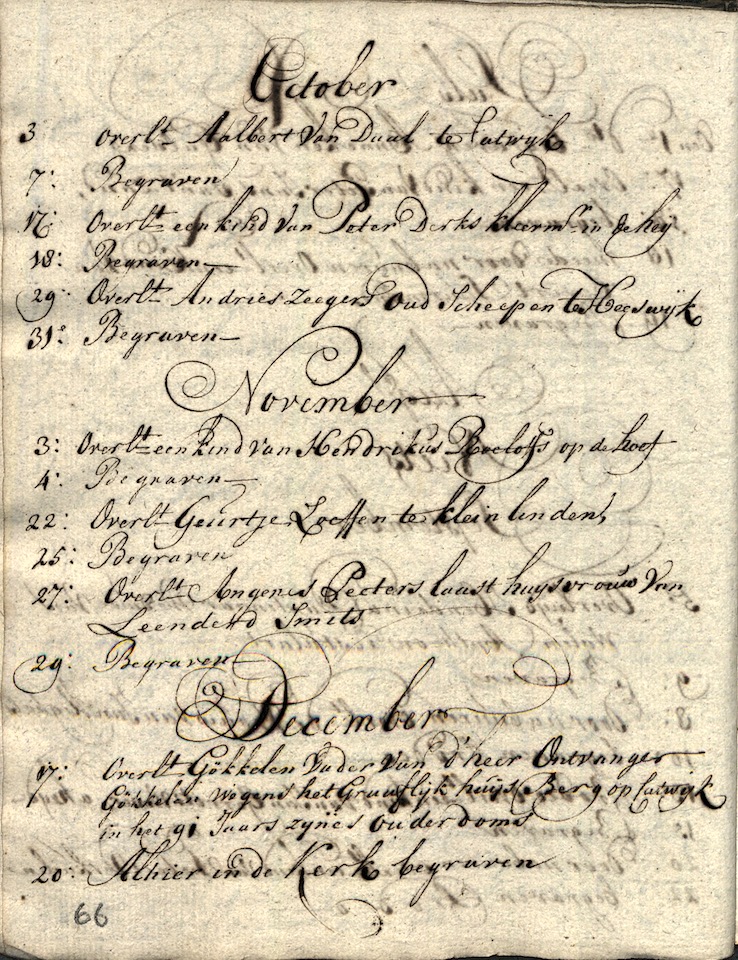 October
3 overlt. Aalbert Van Daal te Catwijk
7: Begraven
17: Overlt. een kind Van Peter Derks kleermr. in de heij
18: Begraven
29 Overlt. Andries Zeegers Oud Scheepen te Heeswijk
31e Begraven
November
3: Overlt. een kind van Hendrikus Roeloffs op de hoef
4: Begraven
22: Overlt. Geurtje Loeffen te klein linden
25: Begraven
27: Overlt. Angenes Peeters laast huysvrouw Van
Leendend Smits
29: Begraven
December
17: Overlt. Gökkelen Vader Van d'heer Ontvanger
Gökkelen Wegens het Graaflijk huijs Berg op Catwijk
in het 91 Jaars zynes ouderdoms
20: Alhier in de Kerk begraven
66